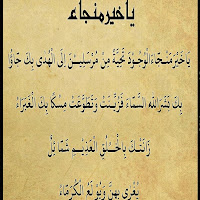 ياخيرمنجاء
يَاخَيْرَ مَنْ جَاءَ الْوُجُودَ تَحِيَّةً مِنْ مُرْسَلِينَ إِلَى الْهُدَى بِكَ جَاؤُا
بِكَ بَشَّرَ اللهُ السَّمَاءَ فَزُيِّنَتْ وَتَطَوَّعَتْ مِسْكًا بِكَ الْغَبْرَاءُ
زَانَتْكَ بِالْخُلُقِ الْعَظِيمِ شَمَائِلُ
يُغْرَى بِهِنَّ وَيُولَعُ الْكُرَمَاءُ